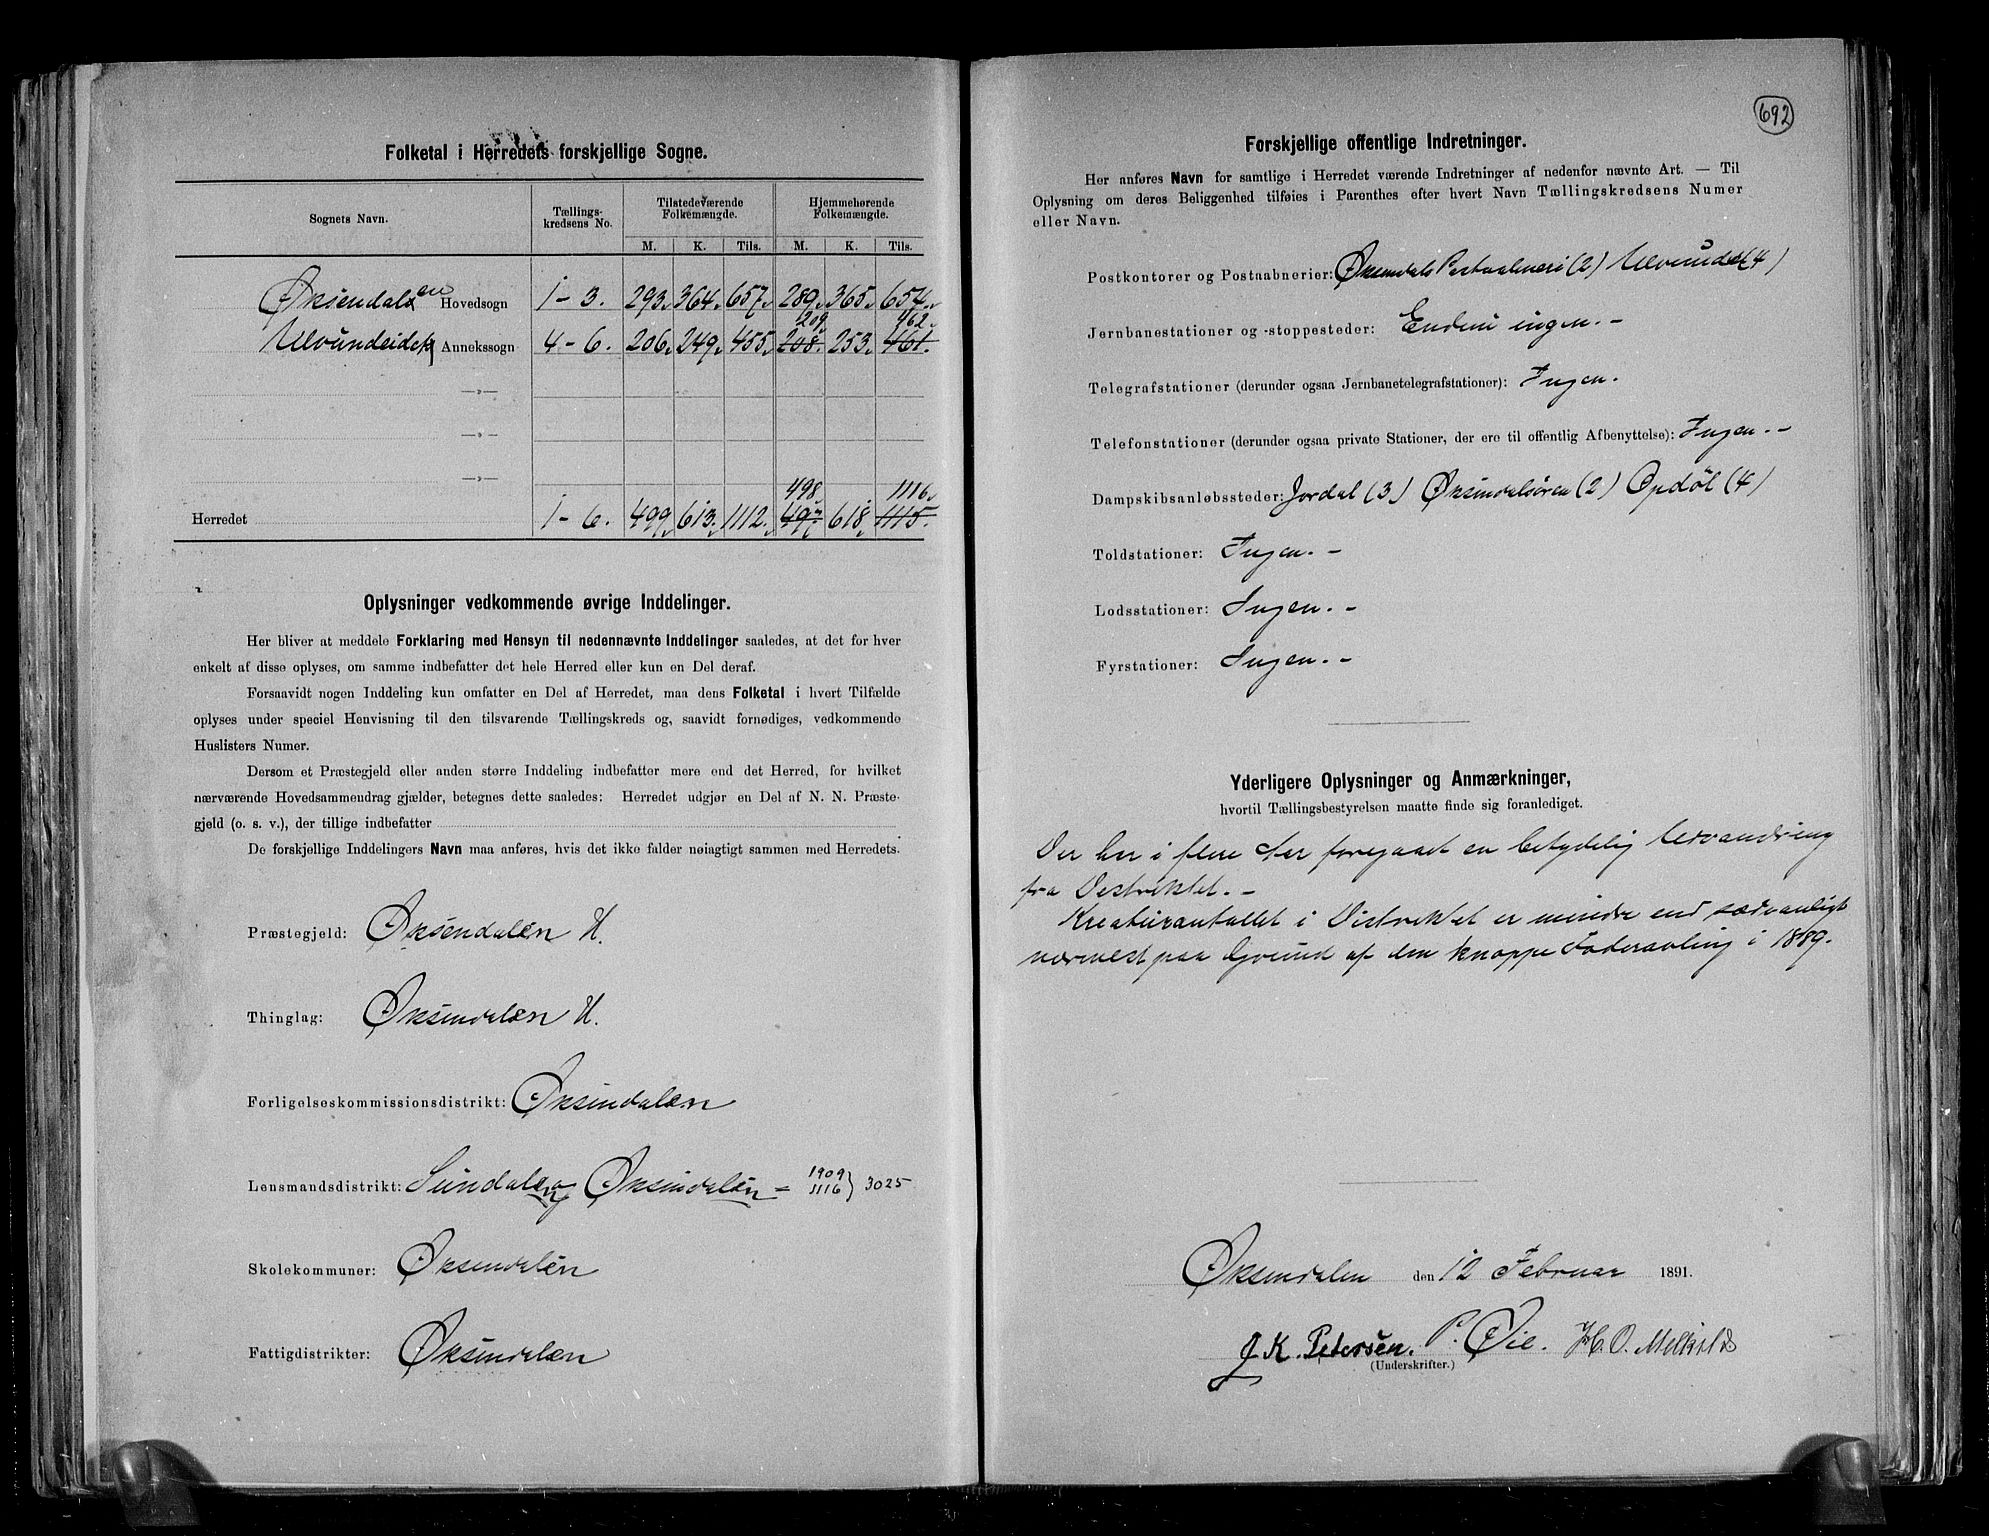 Folketal i Herredets forskjellige Sogne.
Sognets Navn. Tællings-kredsens No. Tilstedeværende Folkemængde. Hjemmehørende Folkemængde.
M. K. Tils. M. K. Tils.
Øksendalen Hovedsogn 1-3. 293 364 657 289 365 654
209 462
Ulvundeidet Annekssogn 4-6. 206 249 455 208. 253 461.
—»—
—»—
—»—
498 1116
Herredet 1-6. 499 613 1112. 497 618 1115.
Oplysninger vedkommende øvrige Inddelinger.
Her bliver at meddele Forklaring med Hensyn til nedennævnte Inddelinger saaledes, at det for hver
enkelt af disse oplyses, om samme indbefatter det hele Herred eller kun en Del deraf.
Forsaavidt nogen Inddeling kun omfatter en Del af Herredet, maa dens Folketal i hvert Tilfælde
oplyses under speciel Henvisning til den tilsvarende Tællingskreds og, saavidt fornødiges, vedkommende
Huslisters Numer.
Dersom et Præstegjeld eller anden større Inddeling indbefatter mere end det Herred, for hvilket
nærværende Hovedsammendrag gjælder, betegnes dette saaledes: Herredet udgjør en Del af N. N. Præste-
gjeld (o. s. v.), der tillige indbefatter
De forskjellige Inddelingers Navn maa anføres, hvis det ikke falder nøiagtigt sammen med Herredets.
Præstegjeld: Øksendalen H.
Thinglag: Øksendalen H.
Forligelseskommissionsdistrikt: Øksendalen
Lensmandsdistrikt: Sundalen og Øksendalen = 1909 1116 } 3025
Skolekommuner: Øksendalen
Fattigdistrikter: Øksendalen
692
Forskjellige offentlige Indretninger.
Her anføres Navn for samtlige i Herredet værende Indretninger af nedenfor nævnte Art. — Til
Oplysning om deres Beliggenhed tilføies i Parenthes efter hvert Navn Tællingskredsens Numer
eller Navn.
Postkontorer og Postaabnerier: Øksendals Postaabneri (2) Ulvund (4)
Jernbanestationer og -stoppesteder: Endnu ingen. -
Telegrafstationer (derunder ogsaa Jernbanetelegrafstationer): Ingen.
Telefonstationer (derunder ogsaa private Stationer, der ere til offentlig Afbenyttelse): Ingen. -
Dampskibsanløbssteder: Jordal (3) Øksendalsøren (2) Opdøl (4)
Toldstationer: Ingen. -
Lodsstationer: Ingen. -
Fyrstationer: Ingen. -
Yderligere Oplysninger og Anmærkninger,
hvortil Tællingsbestyrelsen maatte finde sig foranlediget.
Der har i flere Aar foregaaet en betydelig Udvandring
fra Distriktet. -
Kreaturantallet i Distriktet er mindre end sædvanligt
nærmest paa Grund af den knappe Foderavling i 1889.
Øksendalen den 12 Februar 1891.
J K. Petersen. P. Øie. H. O. Melkild
(Underskrifter.)